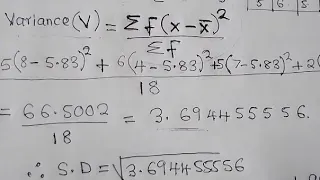 5 6 5
Variance(V) = Σf(x-x̄)²
Σf
5(8-5.83)² + 6(4-5.83)²+5(7-5.83)²+2(
18
= 66.5002 = 3.694455556.
18
∴ S.D = √3.6944555556